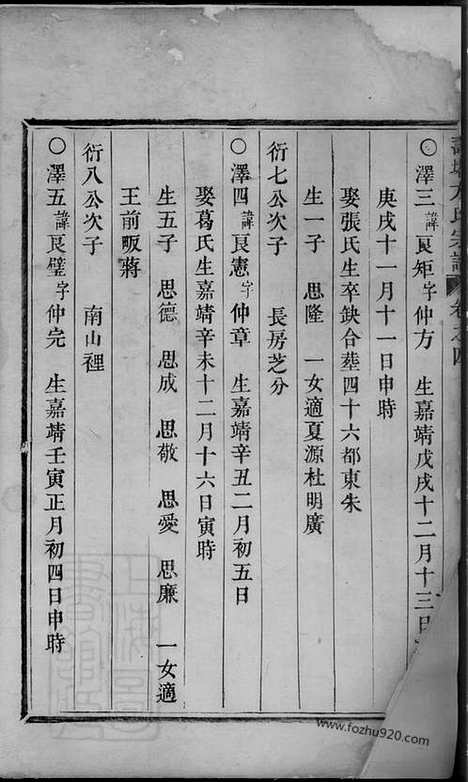 方氏宗譜 卷之四
○澤三諱良矩字仲方 生嘉靖戊戌十二月十三日
庚戌十一月十一日申時
娶張氏生卒缺合塟四十六都東朱
生一子 思隆 一女適夏源杜明廣
衍七公次子 長房芝分
○澤四諱良憲字仲章 生嘉靖辛丑二月初五日
娶葛氏生嘉靖辛未十二月十六日寅時
生五子 思德 思成 思敬 思愛 思廉 一女適
王前畈蔣
衍八公次子 南山裡
○澤五諱良璧字仲完 生嘉靖壬寅正月初四日申時
www.fozhu920.com